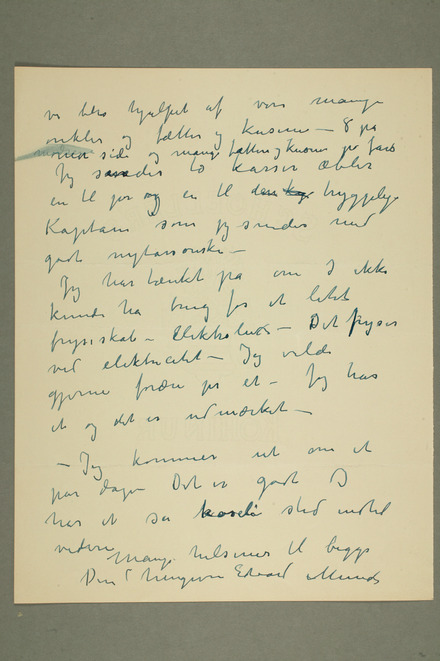 vi blev hjulpet af vore mange
onkler og fætter og kusiner – 8 på
moders side og mange fætter og kusiner på fars
Jeg sender to kasser æbler
en til jer og en til den hyggelige
Kaptein som jeg sender med
godt nytaarsønske –
Jeg har tænkt på om I ikke
kunde ha brug for et litet
fryseskab – Elektrolux – Det fryser
ved elektricitet – Jeg vilde
gjerne foræe jer et – Jeg har
et og det er udmærket –
– Jeg kommer ut om et
par dage Det er godt I
har et sted indtil
videre Mange hilsener til begge
Din hengivne Edvard Munch